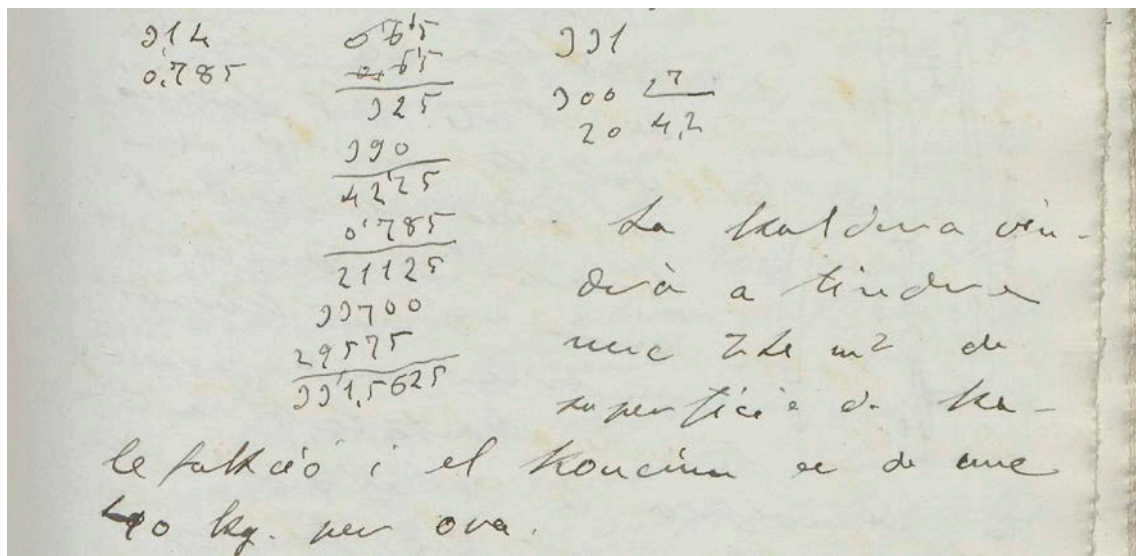 314
0,785
0'65
0,65
325
390
4225
0'785
21125
33700
29575
331,5625
331
300 27
20 4,2
La kaldera vin-
drà a tindre
unc m² de
superficie de ka-
lefakció i el konsum es de unc
kg. per ora.